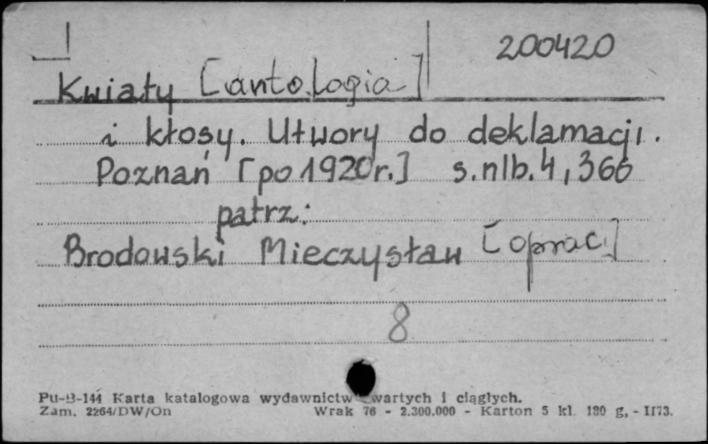 200420
Kwiaty [antologia]
i kłosy. Utwory do deklamacji.
Poznań [po 1920r.] s.nlb.4, 366
patrz:
Brodowski Mieczysław [oprac.]
8
Pu-B-144 Karta katalogowa wydawnictw zwartych i ciągłych.
Zam. 2264/DW/On Wrak 76 - 2.300.000 - Karton 5 kl. 180 g, - II73.